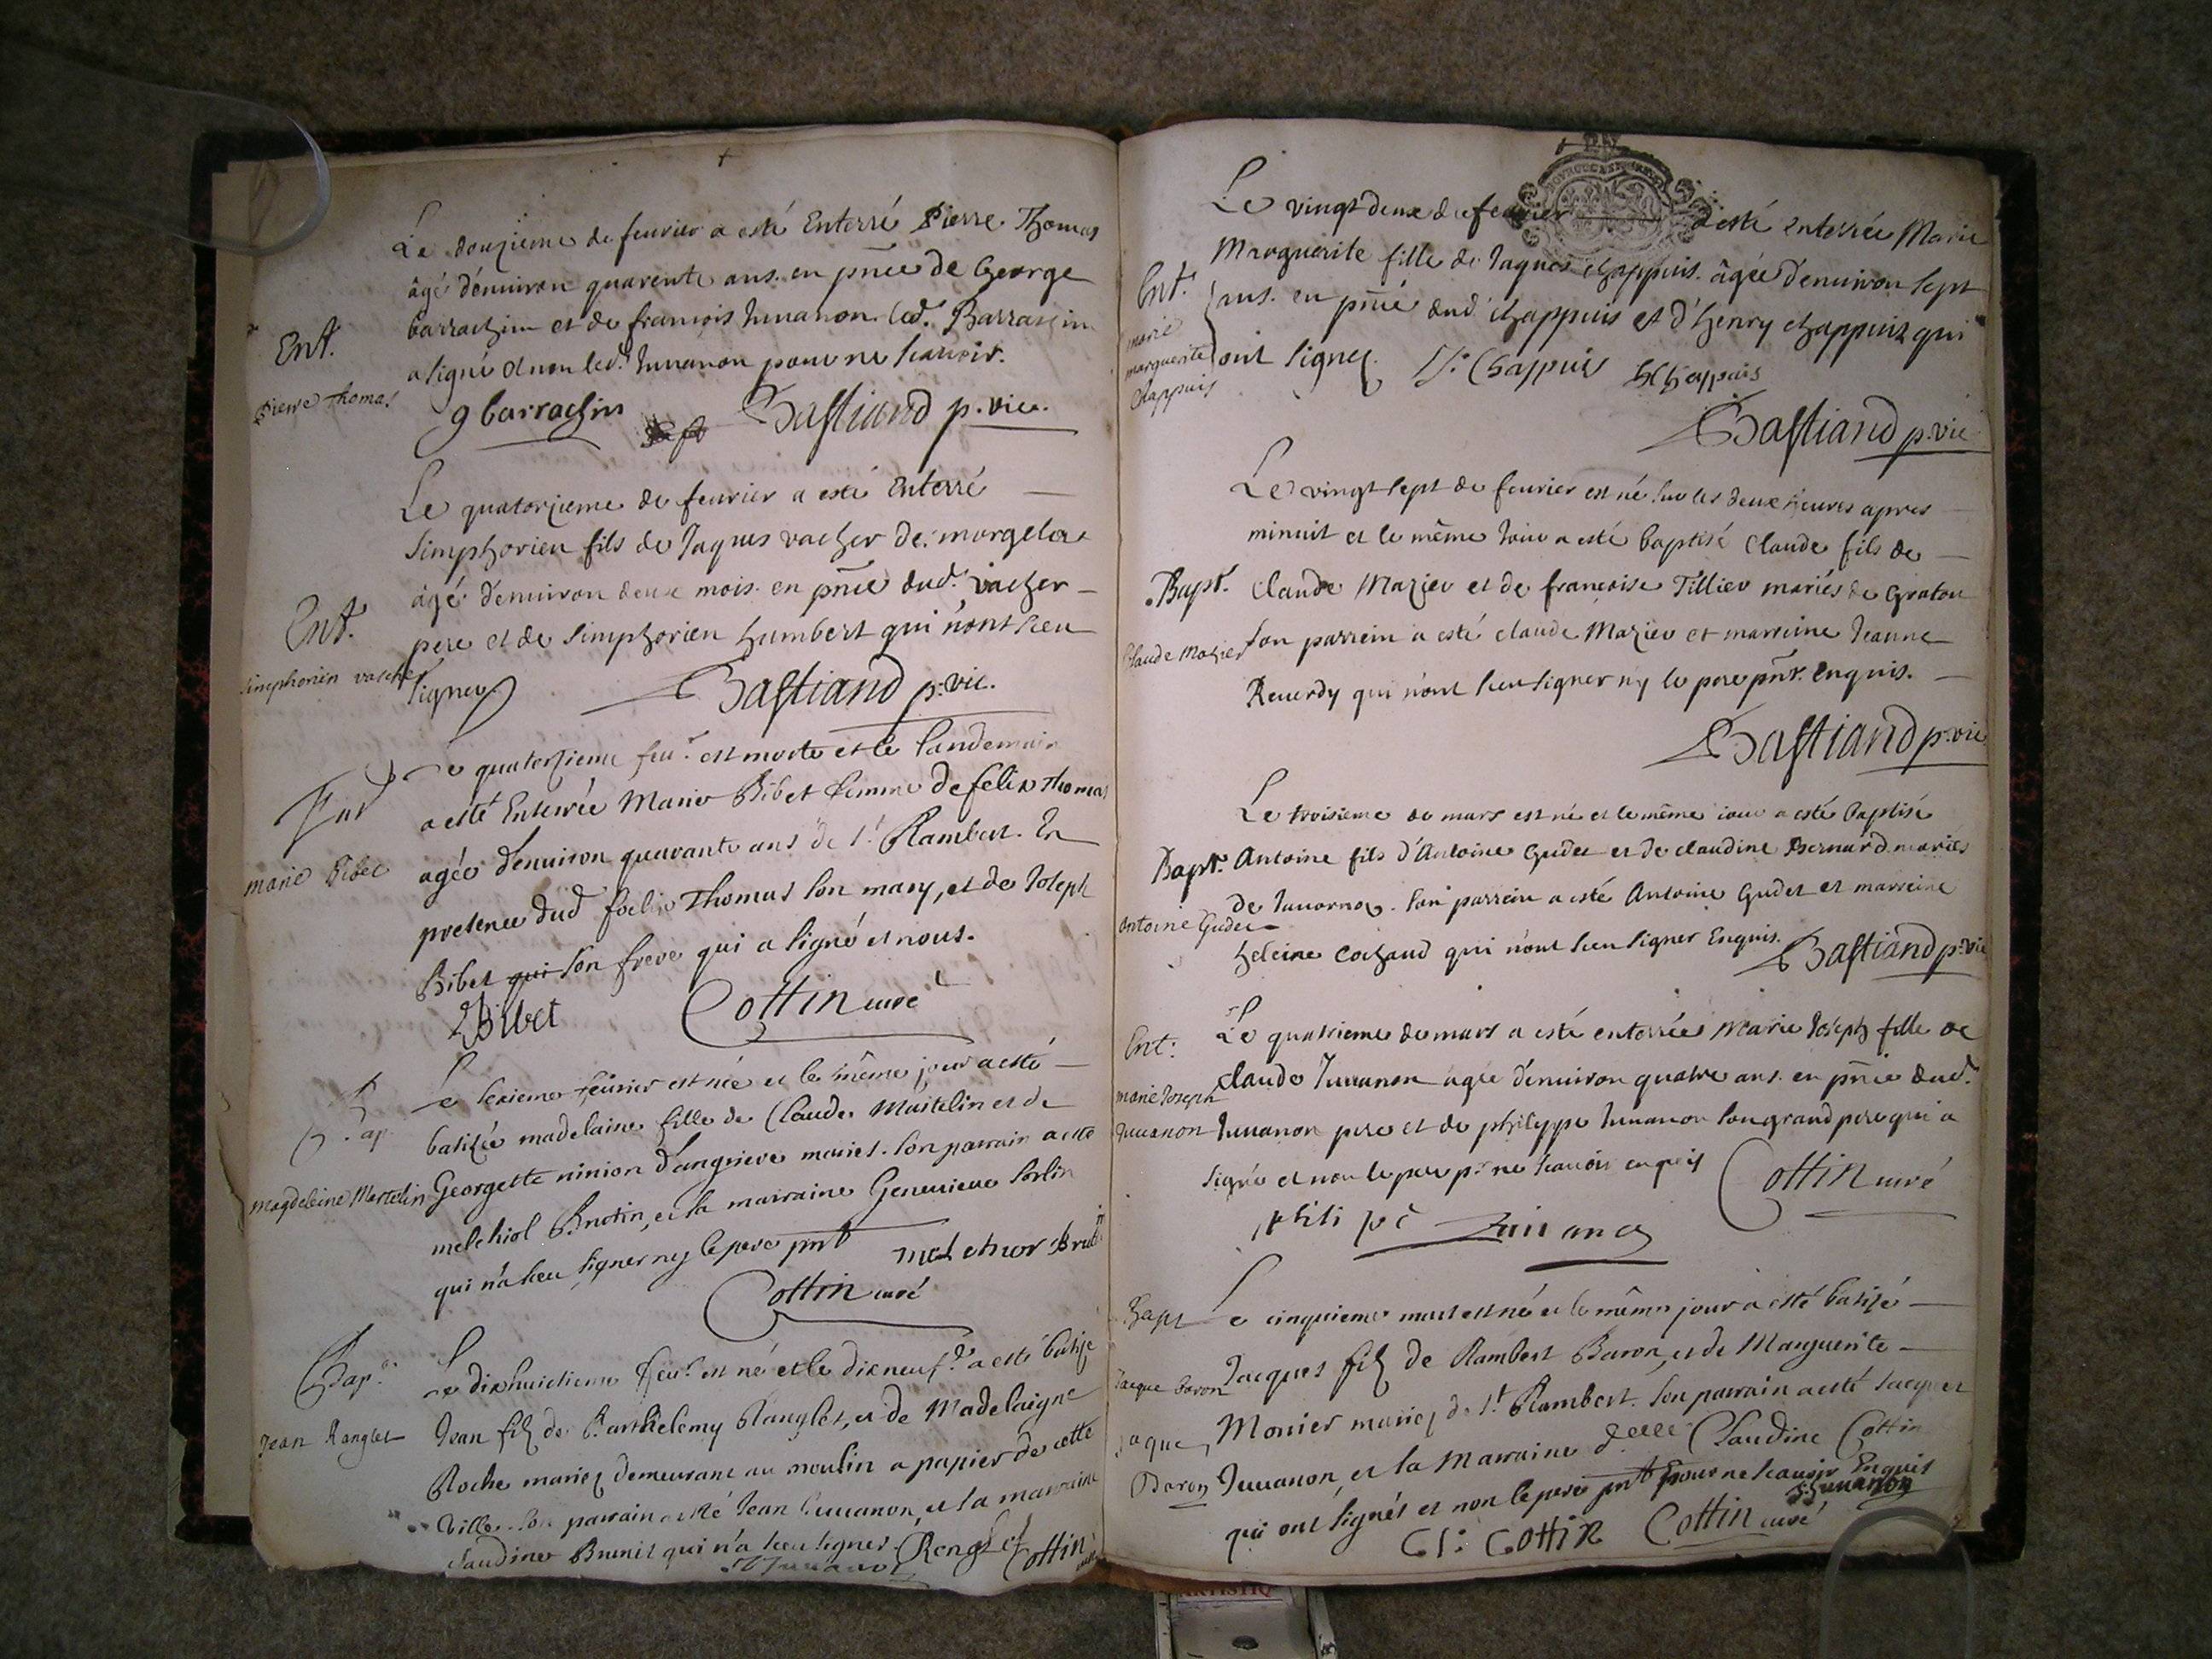 Le douzieme de feurier a esté Enterré Pierre Thomas
âgé d'enuiron quarente ans. en pnce de George
barrachin et de françois Juuanon. led. Barrachin
a signé et non led. Juuanon pour ne scauoir.
Ent.
Pierre Thomas
g barrachin Bastiand p. vic.
Le quatorzieme de feurier a esté Enterré
Simphorien fils de Jaques vacher de
âgé d'enuiron deux mois. en pnce dud. vacher
pere et de Simphorien humbert qui n'ont sceu
signer
Ent.
simphorien vacher
Bastiand p. vic.
Le quatorzieme feu. est morte et le landemain
a esté Enterrée Marie Bibet femme de felix Thomas
agée d'enuiron quarante ans de st Rambert. En
presence dud foelix Thomas son mary, et de Joseph
Bibet qui son frere qui a signé et nous.
Ent
marie Bibet
Bibet Cottin curé
Le sexieme feurier est née et le même jour a esté
batizée madelaine fille de Claude Martelin et de
Georgette ninion d'angrieve mariés. son parrain a esté
melchiol Brotin, et la marraine Geneuieue sorlin
qui n'a sceu signer ny le pere pnt
Bap.
magdeleine Martelin
melchior
Cottin curé
Le dixhuictieme feu. est né et le dixneuf d. a esté batizé
Jean filz de Barthelemy Ranglet, et de Madelaigne
Roche mariez demeurant au moulin a papier de cette
ville. son parrain a esté Jean Juuanon, et la marraine
claudine Brunit qui n'a sceu signer
Bap.
Jean Ranglet
Renglet Cottin
Le vingt deux de feurier a esté enterrée Marie
Marguerite fille de Jaques chappuis. âgée d'enuiron sept
ans. en pnce dud. chappuis et d'henry chappuis qui
ont signez.
Ent.
marie
marguerite
Chappuis
J. Chappuis h Chappuis
Bastiand p. vic
Le vingt sept de feurier est né sur les deux heures apres
minuit et le même Jour a esté baptisé Claude fils de
Claude Mazier et de françoise Tillier mariés de Graton
son parrein a esté claude Mazier et marreine Jeanne
Reuerdy qui n'ont sceu signer ny le pere pnt. Enquis.
Bapt.
Claude Mazier
Bastiand p. vic
Le troisieme de mars est né et le même iour a esté baptisé
Antoine fils d'Antoine Gudet et de claudine Bernard mariés
de son parrein a esté Antoine Gudet et marreine
heleine cochaud qui n'ont sceu signer Enquis. Bastiand p. vic
Bapt.
Antoine Gudet
Le quatrieme de mars a esté enterrée Marie Joseph fille de
claude Juuanon agée d'enuiron quatre ans. en pnce dud.
Juuanon pere et de philippe Juuanon son grand pere qui a
signé et non le pere pr. ne scauoir enquis
Ent.
marie Joseph
Juuanon
Cottin curé
Le cinquieme mars est né et le même jour a esté batizé
Jacques filz de Rambert Baron, et de Marguerite
Monier mariez de st Rambert. son parrain a esté Jacques
Juuanon, et la Marraine delle Claudine Cottin
qui ont signés et non le pere pnt pour ne scauoir Enquis
Bapt
Jacque Baron
Jaque
Baron
Juuanon
Cl: Cottin Cottin curé